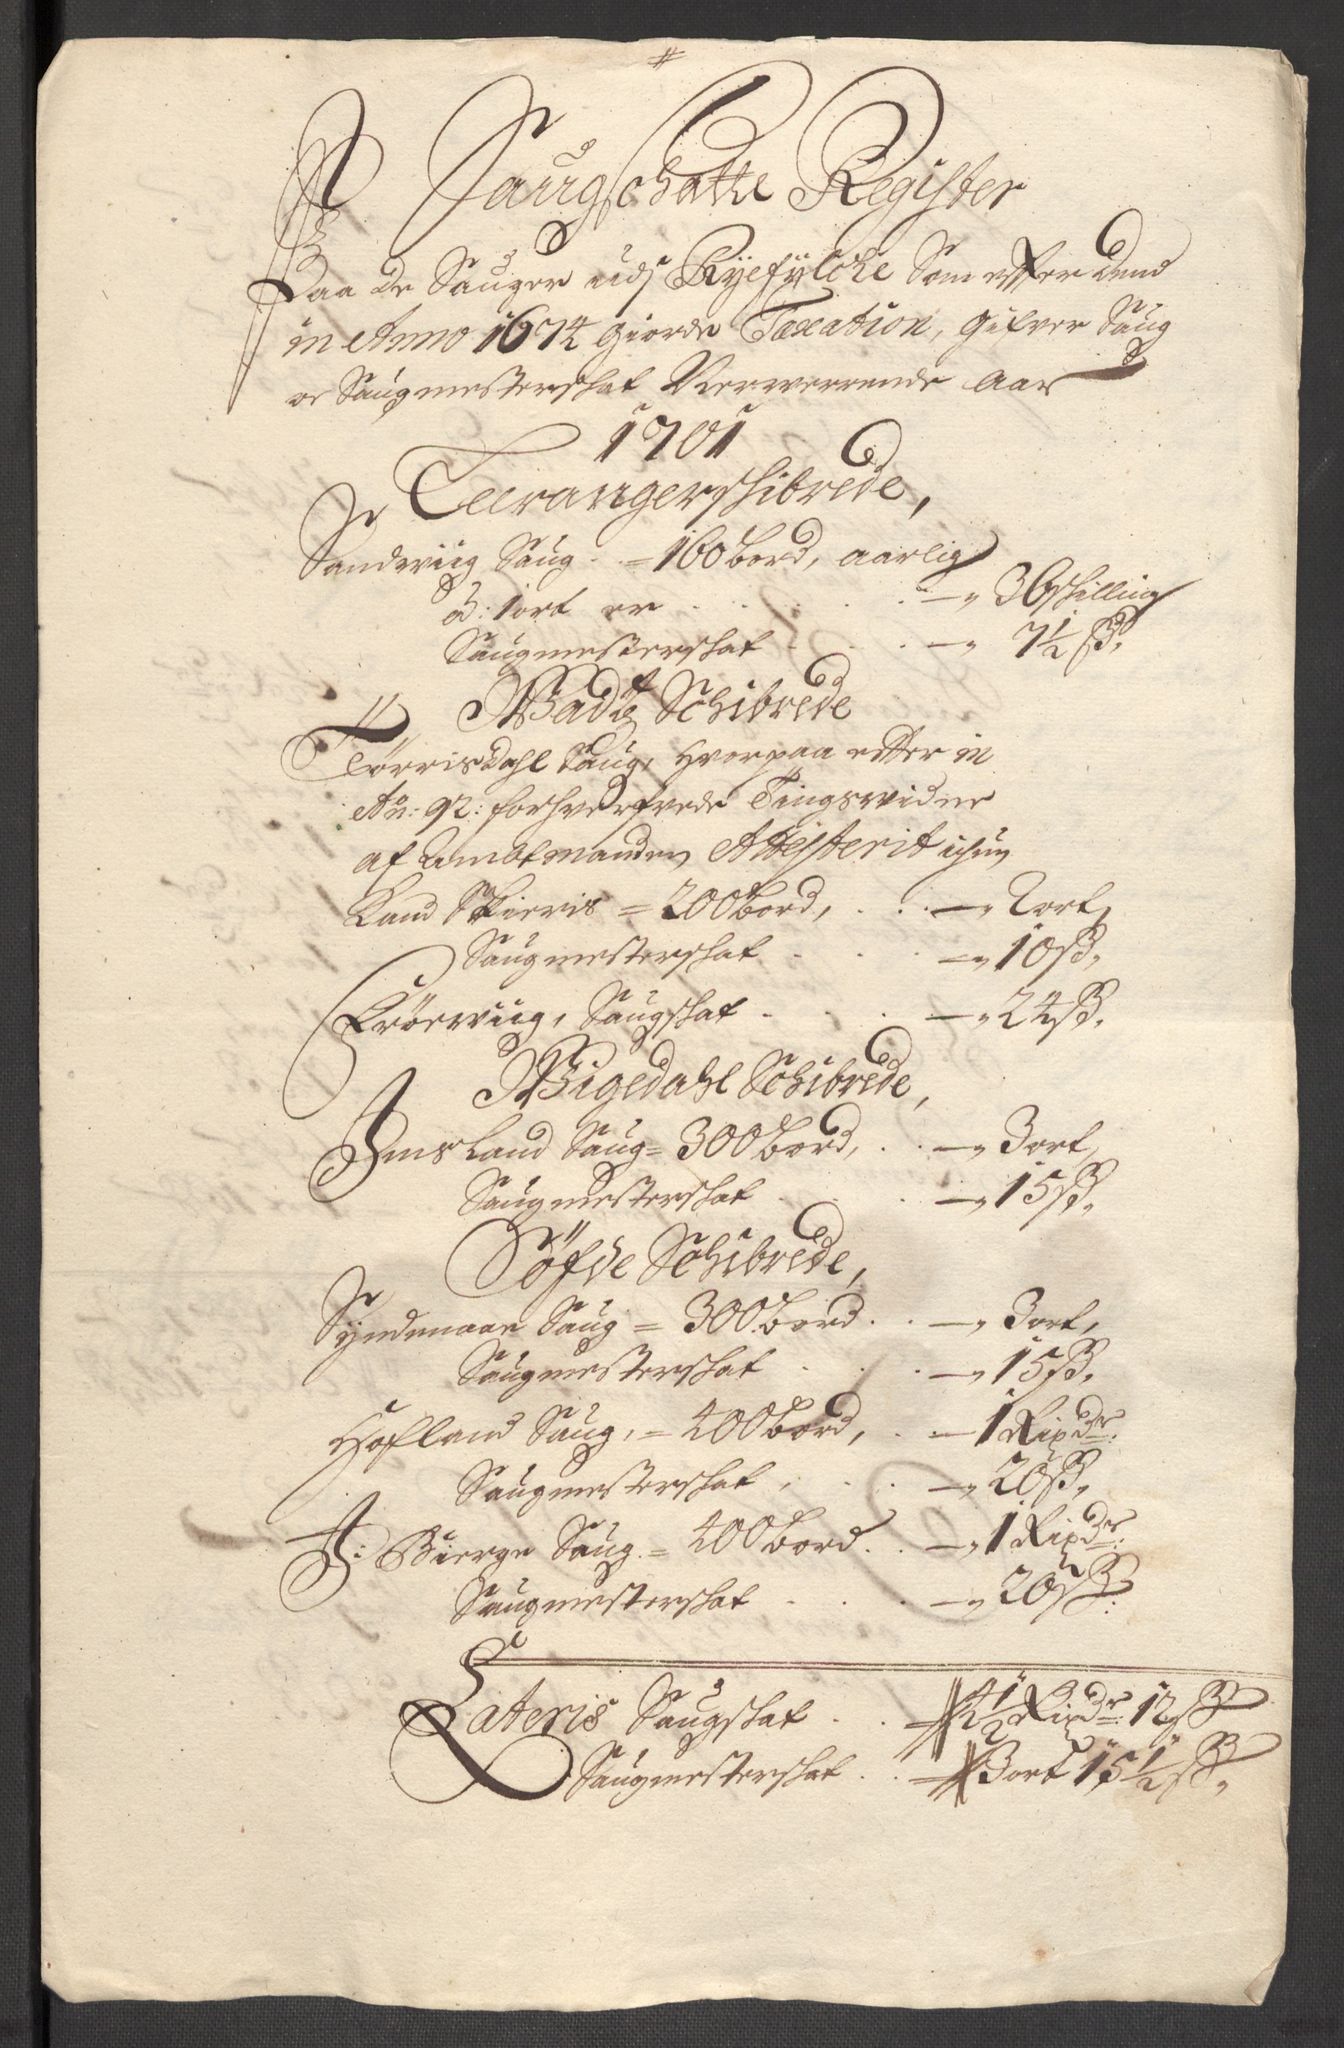 Saugschatte Register
Paa de Sauger udj Ryefylche Som efter dend
in Anno 1674 giorde Taxation, gifver Saug
oc Saugmesterschat Nerverrende Aar
1701
Leerangerschibrede,
Sandwiig Saug = 160 bord, aarlig
à: 1 ort er . . . — 36 schilling
Saugmesterschat . . — 7½ β.
Wadtz Schibrede
Tørrisdahl Saug, hvorpaa efter in
Aō: 92: forhverfvede Tingswidne
af Ambtmanden Attesterit ichun
kand Schieris = 200 bord, . . — 2 ort,
Saugmesterschat . . . — 10 β.
Krøewiig, Saugschat . . . — 24 β.
Wigedahl Schibrede,
Imsland Saug = 300 bord, . . — 3 ort,
Saugmesterschat . . . — 15 β.
Søfde Schibrede,
Syndenaae Saug = 300 bord . . — 3 ort,
Saugmesterschat . . . — 15 β.
Hofland Saug, = 400 bord, . . — 1 Rixdr:
Saugmesterschat . . . — 20 β.
I: Bierge Saug = 400 bord . . — 1 Rixdr:
Saugmesterschat . . . — 20 β:
Lateris Saugschat . . 4½ Rixdr: 12 β
Saugmesterschat . . 3 ort 15½ β.